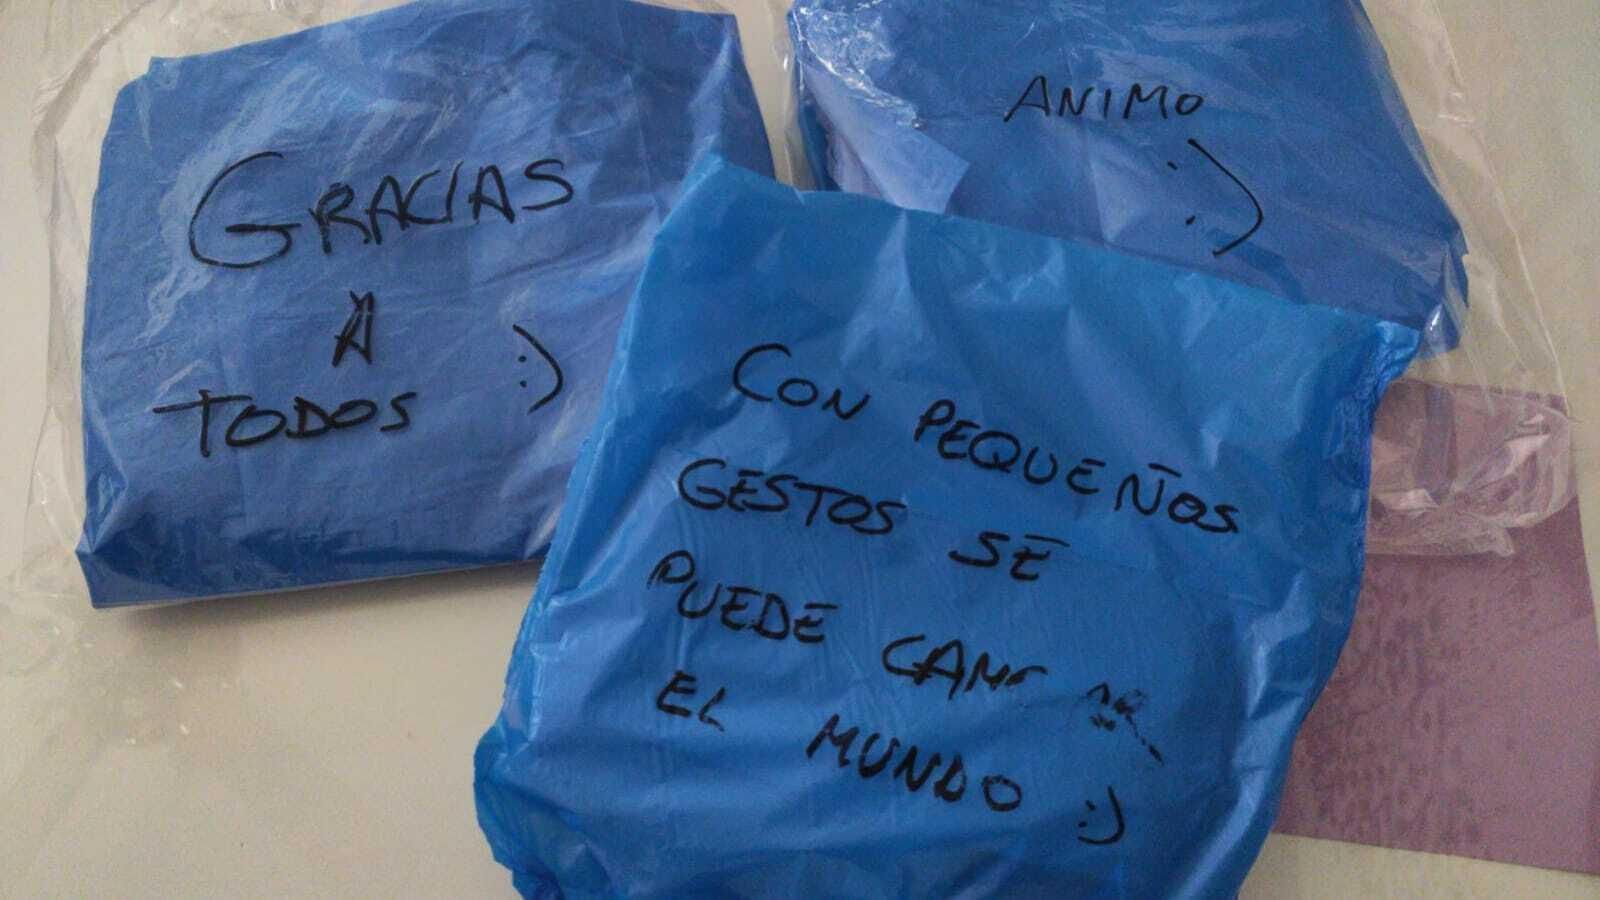 GRACIAS
A
TODOS :)
ANIMO
:)
CON PEQUEÑOS
GESTOS SE
PUEDE
EL MUNDO :)